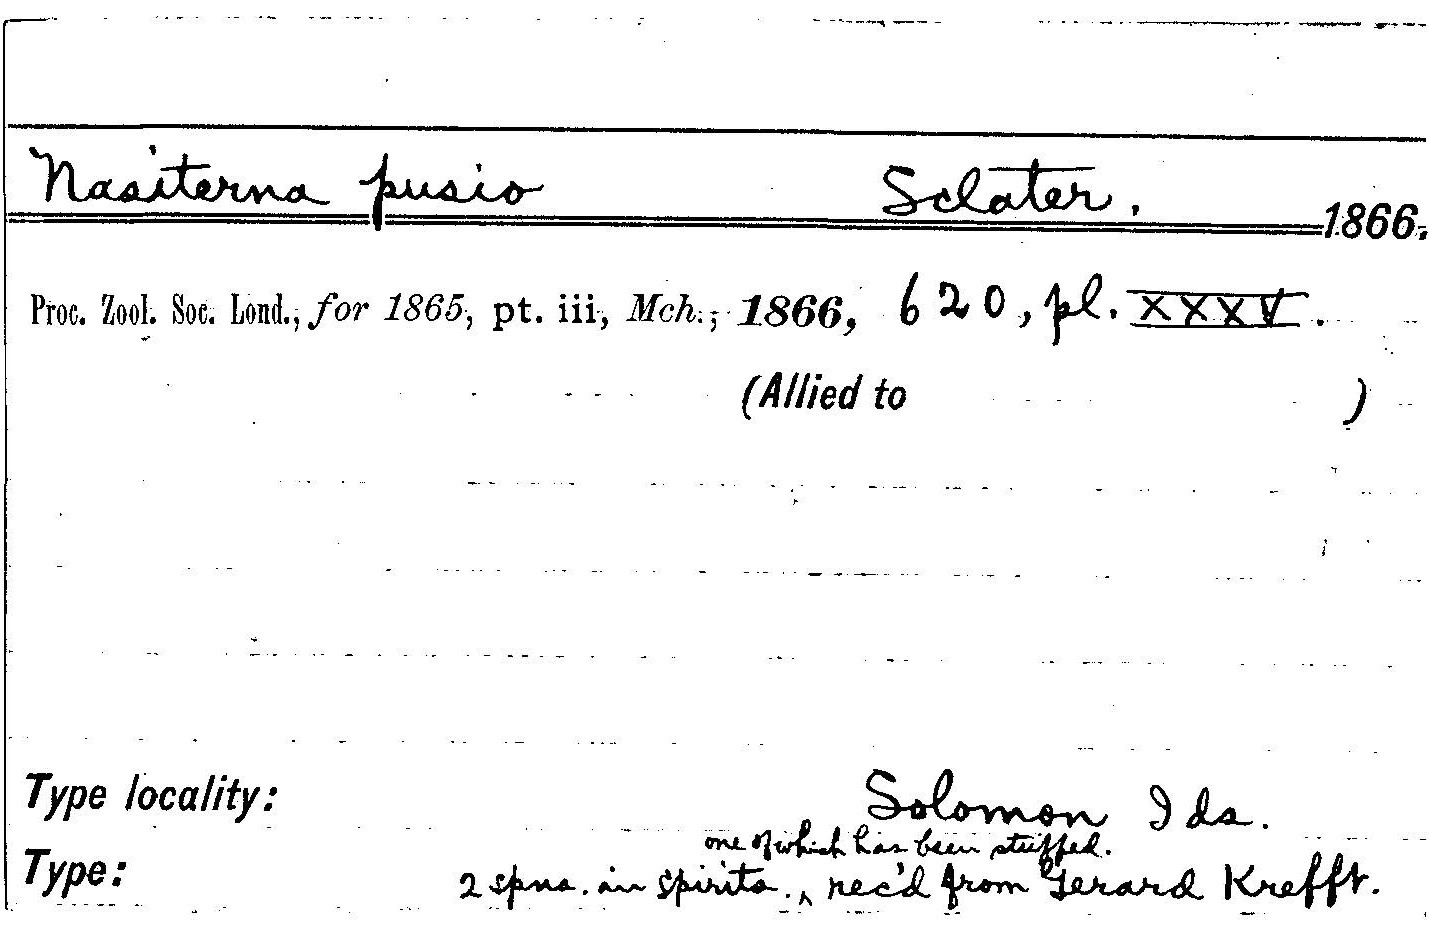 Nasiterna pusio Sclater. 1866.
Proc. Zool. Soc. Lond., for 1865, pt. iii, Mch., 1866, 620, pl. XXXV.
(Allied to )
Type locality: Solomon Ids.
one of which has been stuffed.
Type: 2 spns. in spirits. ‸ rec'd from Gerard Krefft.